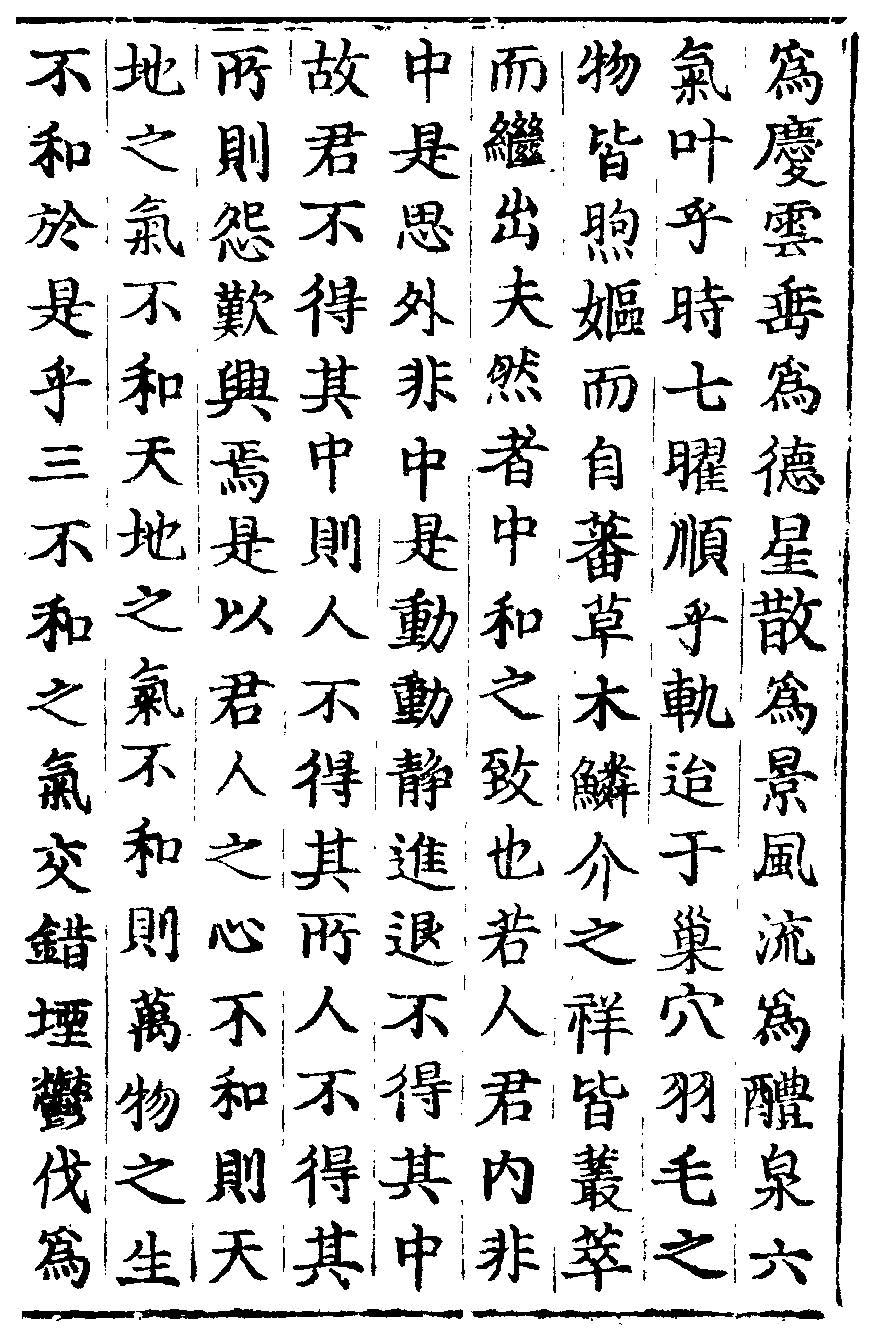 爲慶雲垂爲德星散爲景風流爲醴泉六
氣叶乎時七曜順乎軌迨于巢穴羽毛之
物皆煦嫗而自蕃草木鱗介之祥皆叢萃
而繼出夫然者中和之致也若人君內非
中是思外非中是動動靜進退不得其中
故君不得其中則人不得其所人不得其
所則怨歎興焉是以君人之心不和則天
地之氣不和天地之氣不和則萬物之生
不和於是乎三不和之氣交錯堙鬱伐爲